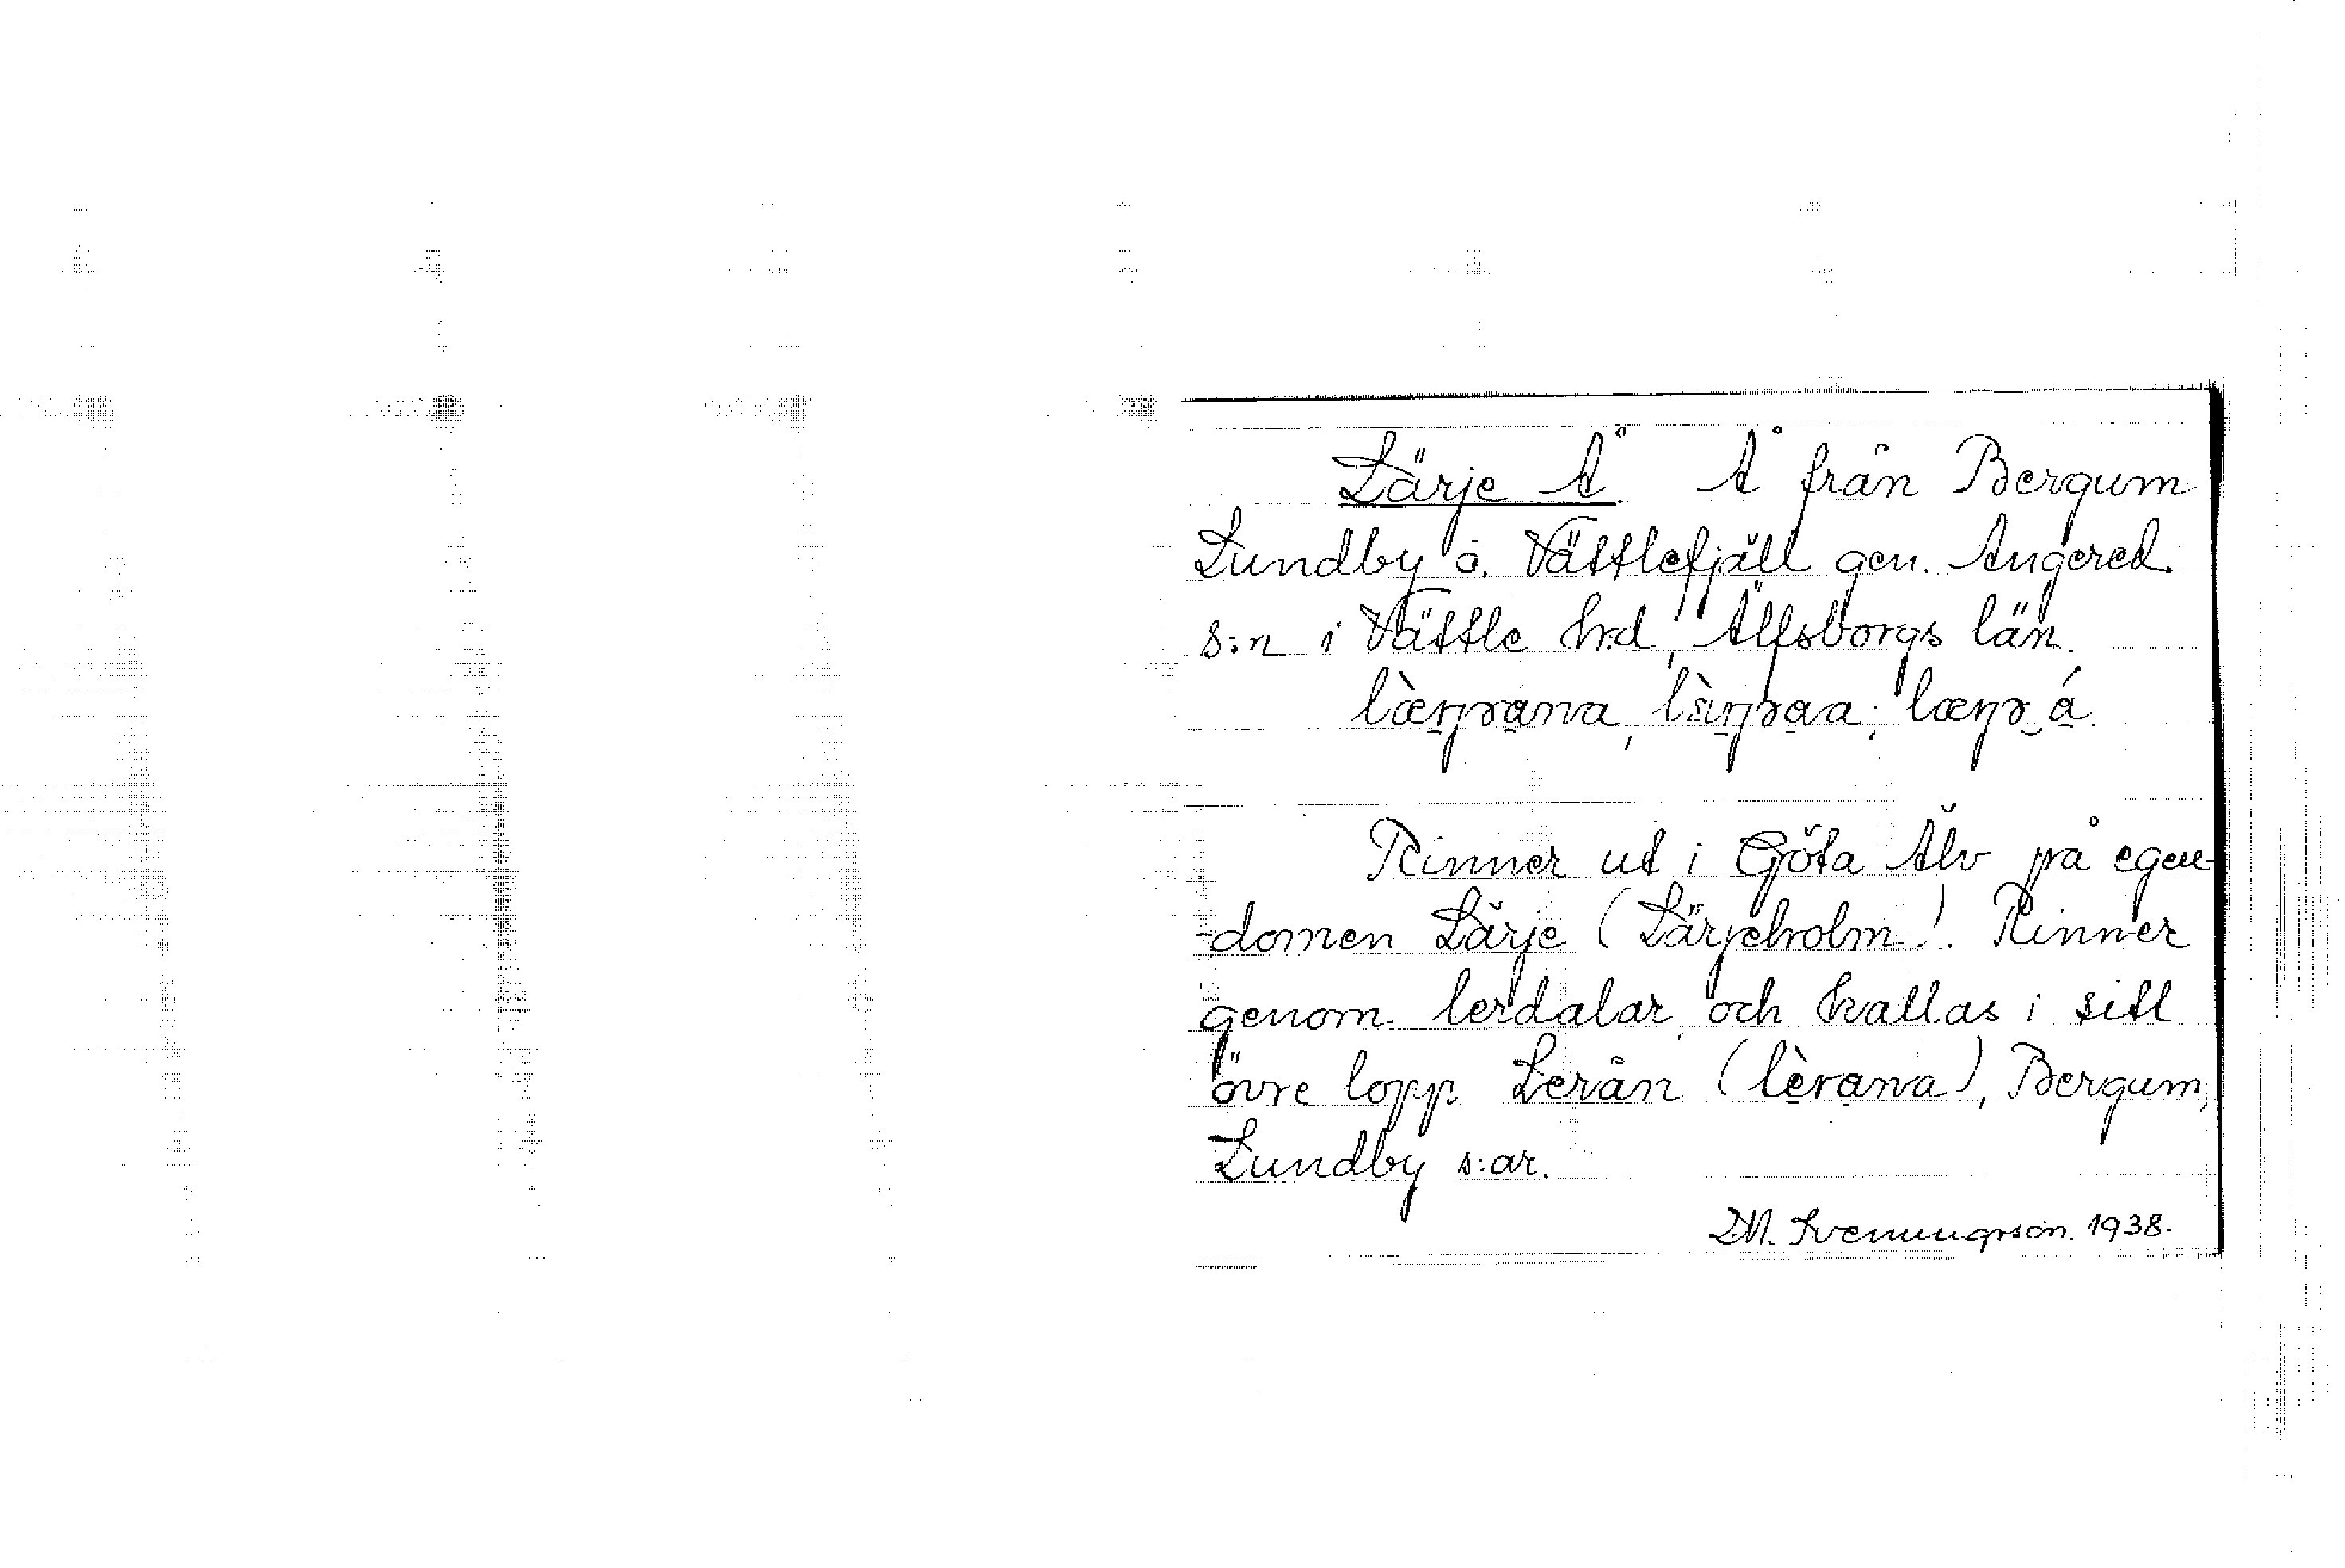 Lärje Å. Å från Bergum
Lundby o. Vättlefjäll gen. Angered.
s:n i Vättle hrd, Älfsborgs län.
Rinner ut i Göta Älv på egen-
domen Lärje (Lärjeholm). Rinner
genom lerdalar, och kallas i sitt
övre lopp Lerån (lèrana), Bergum,
Lundby s:ar.
1938.